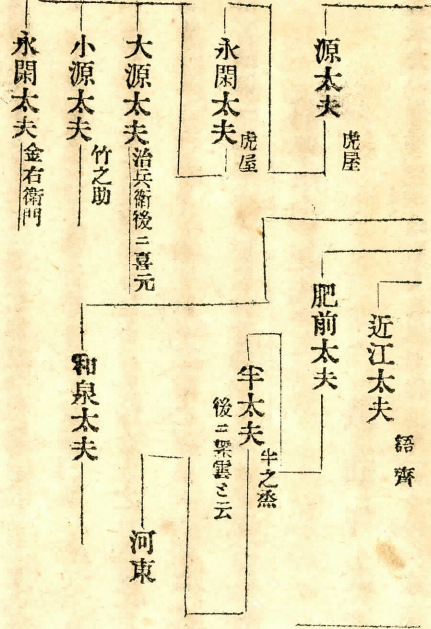 源太夫 虎屋
永閑太夫 虎屋
大源太夫 治兵衛後ニ喜元
小源太夫 竹之助
永閑太夫 金右衛門
近江太夫 語齊
肥前太夫
半太夫 半之烝
後ニ梁雲と云
河東
和泉太夫